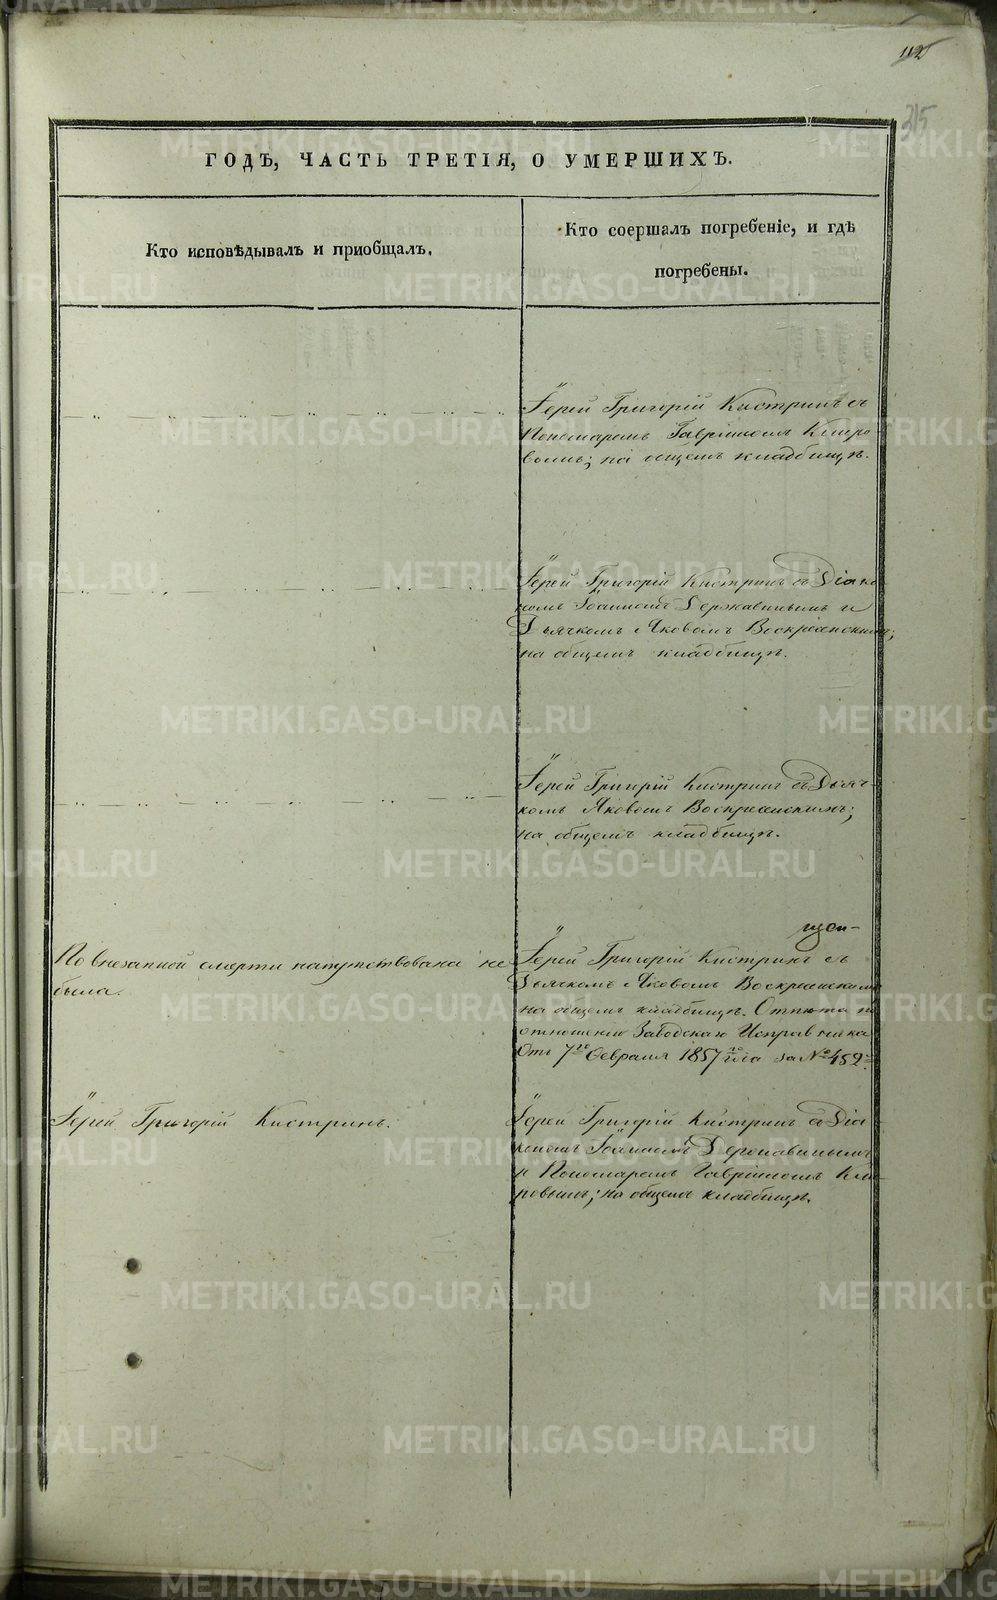 112
315
ГОДѢ, ЧАСТЬ ТРЕТІЯ, О УМЕРШИХЪ.
Кто исповѣдывалъ и приобщалъ.
Кто соершалъ погребеніе, и гдѣ
погребены.
Іерей Григорій Кистринъ съ
Пономаремъ Гавріиломъ
на общемъ кладбищѣ.
Іерей Григорій Кистринъ съ Діако
номъ Іоанномъ Державинымъ и
Дьячкомъ Яковомъ Воскресенскимъ;
на общемъ кладбищѣ.
Іерей Григорій Кистринъ съ Дьяч-
комъ Яковомъ Воскресенскимъ;
на общемъ кладбищѣ.
По внезапной смерти напутствована не
была.
Іерей Григорій Кистринъ съ
Дьячкомъ Яковомъ Воскресенскимъ
на общемъ кладбищѣ. Отпѣта по
отношенію Заводскаго Исправника
Отъ 7го Февраля 1857го года за № 452.
Іерей Григорій Кистринъ.
Іерей Григорій Кистринъ съ Діа-
кономъ Іоанномъ Державинымъ
и Пономаремъ Гавріиломъ
на общемъ кладбищѣ.
METRIKI.GASO-URAL.RU